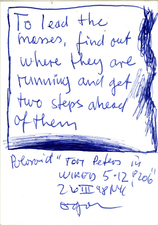 To lead the
masses, find out
where they are
running and get
two steps ahead
of them
Peters in
WIRED 5·12 P206
26 III 98 NYC